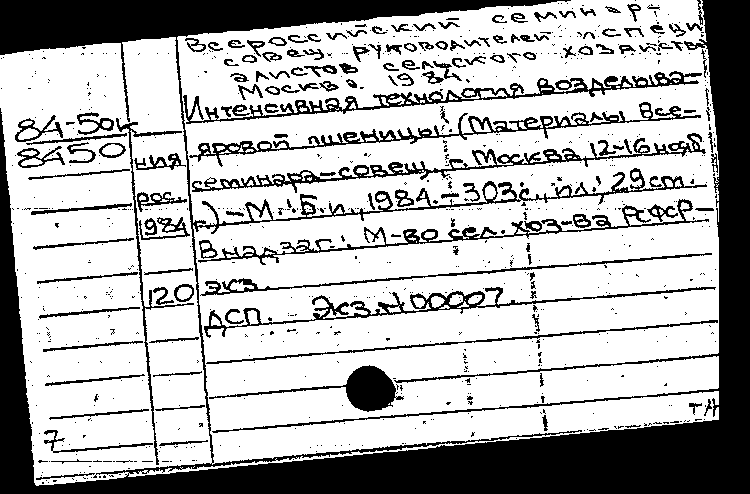 Всероссийский семинар-
совещ. руководителей и специ
алистов сельского хозяйства
Москва. 1984.
84-50к
8450
Интенсивная технология возделыва-
ния яровой пшеницы: (Материалы Все-
рос. семинара-совещ., г. Москва, 12-16 нояб
1984 г.) - М.: Б.и., 1984. - 303с., ил.; 29см.
В надзаг.: М-во сел. хоз-ва РСФСР-
120 экз.
ДСП. Экз.№00007.
7
ТА